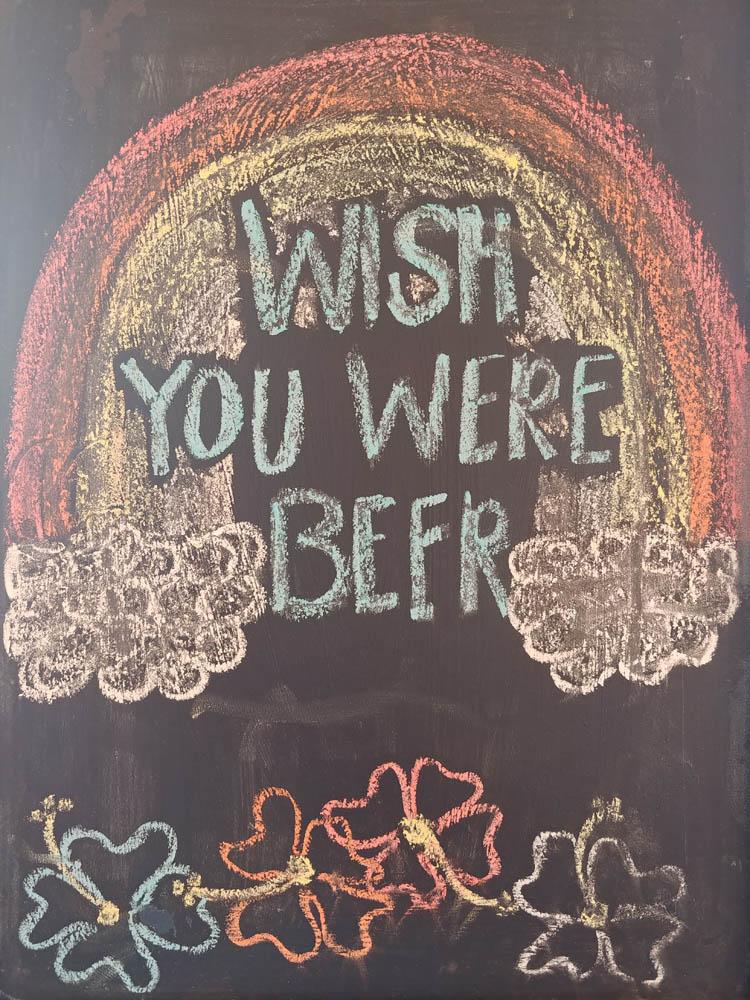 WISH
YOU WERE
BEER